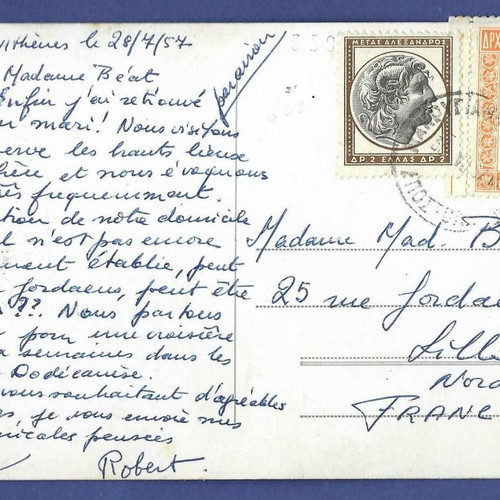 Athènes le 28/7/57
Madame Béat
Enfin j'ai retrouvé
mari! Nous visitons
les hauts lieux
et nous évaquons
frequemment.
tion de notre domicile
n'est pas encore
ment établie, peut
Jordaens, peut être
??. Nous partons
pour une croisière
semaines dans les
Dodécanèse.
vous souhaitant d'agréables
je vous envoie mes
amicales pensées
Robert.
par avion
ΜΕΓΑΣ ΑΛΕΞΑΝΔΡΟΣ
ΔΡ. 2 ΕΛΛΑΣ ΔΡ. 2
ΔΡΧ
Madame Mad. B
25 rue Jorda
Lille
Nord
FRANC